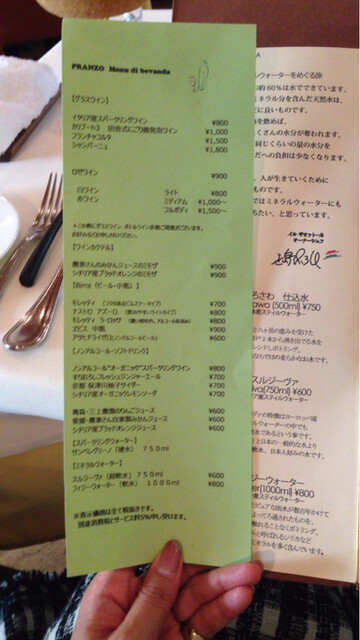 PRANZO Menu di bevanda
【グラスワイン】
イタリア産スパークリングワイン ¥800
カリブート3 田舎式にごり微発泡ワイン ¥1,000
フランチャコルタ ¥1,500
シャンパーニュ ¥1,800
ロゼワイン ¥900
白ワイン ライト ¥800
赤ワイン ミディアム ¥1,000～
フルボディ ¥1,500～
＊この他にグラスワイン、ボトルワイン多数ご用意がございます。
お好みなどお申しのれください。
【ワインカクテル】
農家さんのみかんジュースのミモザ ¥900
シチリア産ブラッドオレンジのミモザ ¥900
【Birra（ビール・小瓶）】
モレッティ ¥700
ナストロ アズーロ (飲みやすいライトタイプ) ¥800
モレッティ ラ・ロッサ ¥800
ヱビス 中瓶 ¥900
アサヒドライゼロ(ノンアルコールビール) ¥600
【ノンアルコール・ソフトドリンク】
ノンアルコール"オーガニック"スパークリングワイン ¥800
すりおろしフレッシュジンジャーエール ¥700
京都 保津川柚子サイダー ¥700
シチリア産オーガニックレモンソーダ ¥700
青森・三上農園のりんごジュース ¥600
愛媛・農家さん自家製みかんジュース ¥600
シチリア産ブラッドオレンジジュース ¥600
【スパークリングウォーター】
サンペレグリーノ（硬水） 750ml
【ミネラルウォーター】
スルジーヴァ（超軟水）750ml ¥600
フィジーウォーター（軟水） 1000ml ¥800
※表示価格は全て税抜きです。
別途消費税とサービス料5%申し受けます。
ルウォーターをめぐる旅
約60％は水でできています。
ミネラル分を含んだ天然水は、
に良いものです。
を飲めば、
くさんの水分が奪われます。
同じくらいの量の水分を
への負担は少なくなります。
、人が生きていくために
ものです。
ではミネラルウォーターにも
たい、と思っています。
イル サオットーネ
オーナーシェフ
ろさわ 仕込水
awa (500ml) ¥750
産スティルウォーター
と八ヶ岳の恵みを受けた
スルジーヴァ
va(750ml) ¥600
産スティルウォーター
ヴァの特徴はヨーロッパ産
ルウォーターの中でも
水であるという事です。
と日本の一般的な水より
軟水、日本人好みの水です。
ジーウォーター
er(1000ml) ¥800
産スティルウォーター
とピュアな雨水が数百年かけて
よってろ過されたものを、
触れることなくボトリング。
水と呼ばれるシリカなど
ミネラルを多く含んでいます。